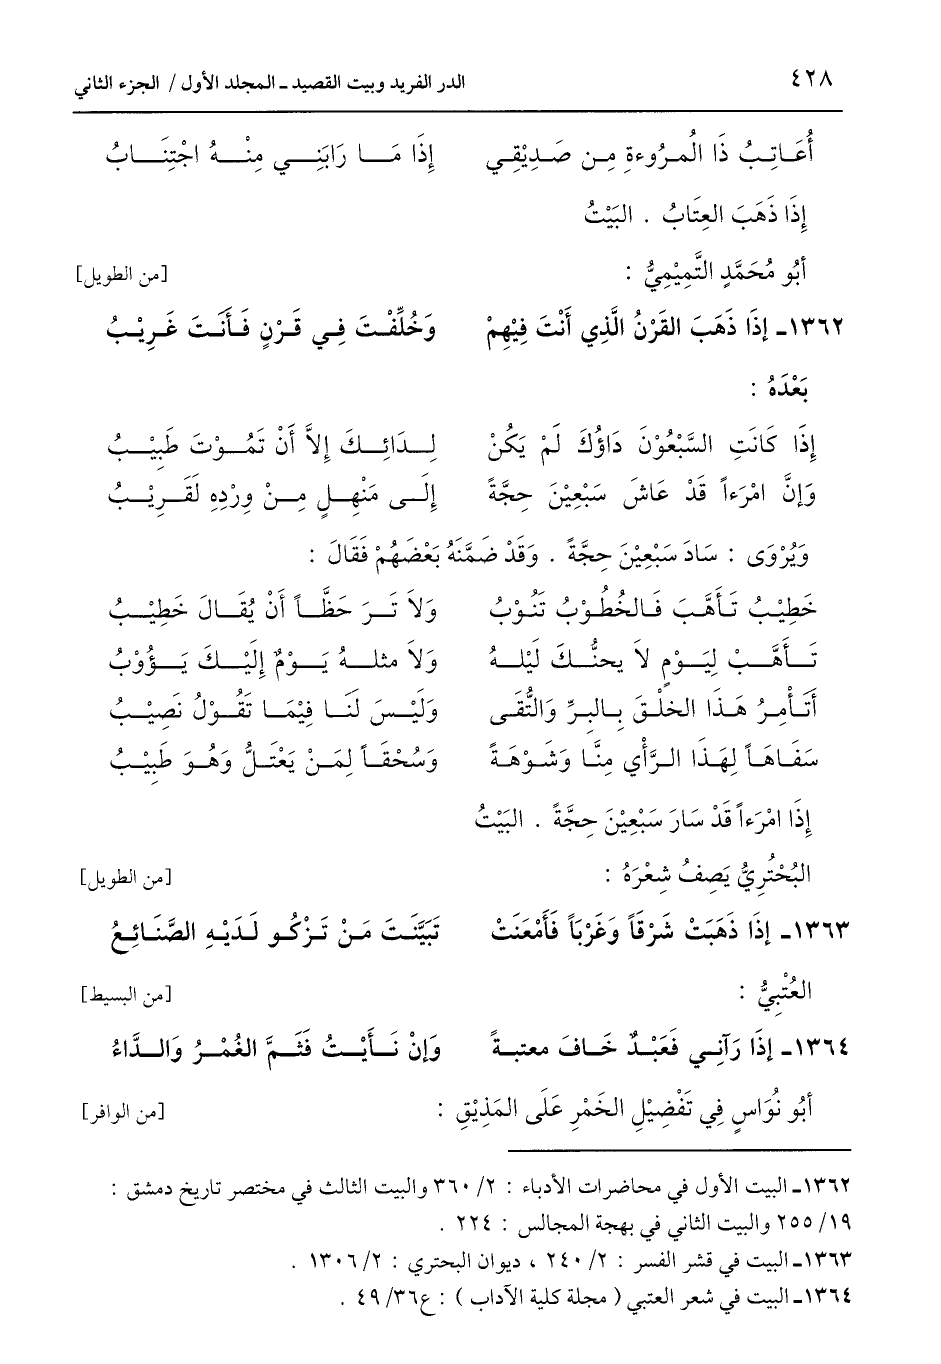 ٤٢٨ الدر الفريد وبيت القصيد ـ المجلد الأول / الجزء الثاني
أُعَاتِبُ ذَا المُرُوءةِ مِن صَدِيْقِي إِذَا مَا رَابَنِي مِنْهُ اجْتِنَابُ
إِذَا ذَهَبَ العِتَابُ . البَيْتُ
أَبُو مُحَمَّدٍ التَّمِيْمِيُّ : [من الطويل]
١٣٦٢ـ إِذَا ذَهَبَ القَرْنُ الَّذِي أَنْتَ فِيْهِمْ وَخُلِّفْتَ فِي قَرْنٍ فَأَنتَ غَرِيْبُ
بَعْدَهُ :
إِذَا كَانَتِ السَّبْعُوْنَ دَاؤُكَ لَمْ يَكُنْ لِدَائِكَ إِلاَّ أَنْ تَمُوْتَ طَبِيْبُ
وَإِنَّ امْرَءاً قَدْ عَاشَ سَبْعِيْنَ حِجَّةً إِلَى مَنْهِلٍ مِنْ وِرْدِهِ لَقَرِيْبُ
وَيُرْوَى : سَادَ سَبْعِيْنَ حِجَّةً . وَقَدْ ضَمَّنَهُ بَعْضُهُمْ فَقَالَ :
خَطِيْبُ تَأَهَّبَ فَالخُطُوْبُ تَنُوْبُ وَلاَ تَرَ حَظَّاً أَنْ يُقَالَ خَطِيْبُ
تَأَهَّبْ لِيَوْمٍ لاَ يجنُّكَ لَيْلهُ وَلاَ مثلهُ يَوْمٌ إِلَيْكَ يَؤُوْبُ
أَتَأْمِرُ هَذَا الخَلْقَ بِالبِرِّ وَالتُّقَى وَلَيْسَ لَنَا فِيْمَا تَقُوْلُ نَصِيْبُ
سَفَاهَاً لِهَذَا الرَّأْي مِنَّا وَشَوْهَةً وَسُحْقَاً لِمَنْ يَعْتَلُّ وَهُوَ طَبِيْبُ
إِذَا امْرَءاً قَدْ سَارَ سَبْعِيْنَ حِجَّةً . البَيْتُ
البُحْتُرِيُّ يَصِفُ شِعْرَهُ : [من الطويل]
١٣٦٣ـ إِذَا ذَهَبَتْ شَرْقَاً وَغَرْبَاً فَأَمْعَنَتْ تَبَيَّنَتَ مَنْ تَزْكُو لَدَيْهِ الصَّنَائِعُ
العُتْبِيُّ : [من البسيط]
١٣٦٤ـ إِذَا رَآنِي فَعَبْدٌ خَافَ معتبةً وَإِنْ نَأَيْتُ فَثَمَّ الغُمْرُ وَالدَّاءُ
أَبُو نُوَاسٍ فِي تَفْضِيْلِ الخَمْرِ عَلَى المَذِيْقِ : [من الوافر]
١٣٦٢ـ البيت الأول في محاضرات الأدباء : ٢/ ٣٦٠ والبيت الثالث في مختصر تاريخ دمشق :
١٩/ ٢٥٥ والبيت الثاني في بهجة المجالس : ٢٢٤ .
١٣٦٣ـ البيت في قشر الفسر : ٢/ ٢٤٠ ، ديوان البحتري : ٢/ ١٣٠٦ .
١٣٦٤ـ البيت في شعر العتبي ( مجلة كلية الآداب ) : ع٣٦/ ٤٩ .